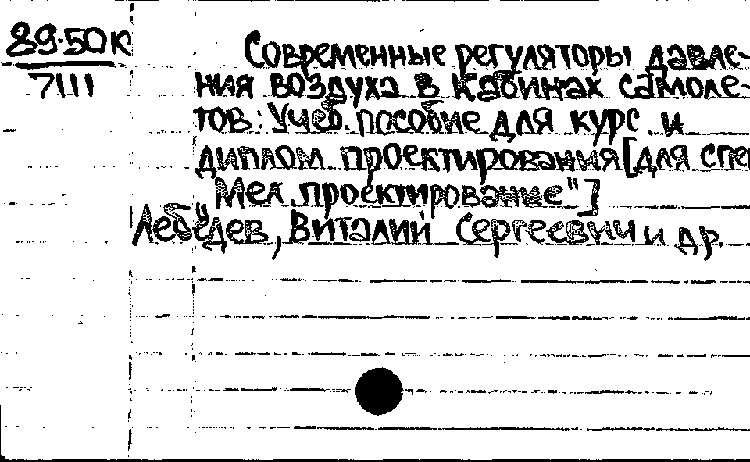 89-50К
7111
Современные регуляторы давле-
ния воздуха в кабинах самоле-
тов: Учеб. пособие для курс. и
диплом. проектирования [для спец
"Мех. проектирование"]
Лебедев, Виталий Сергеевич и др.